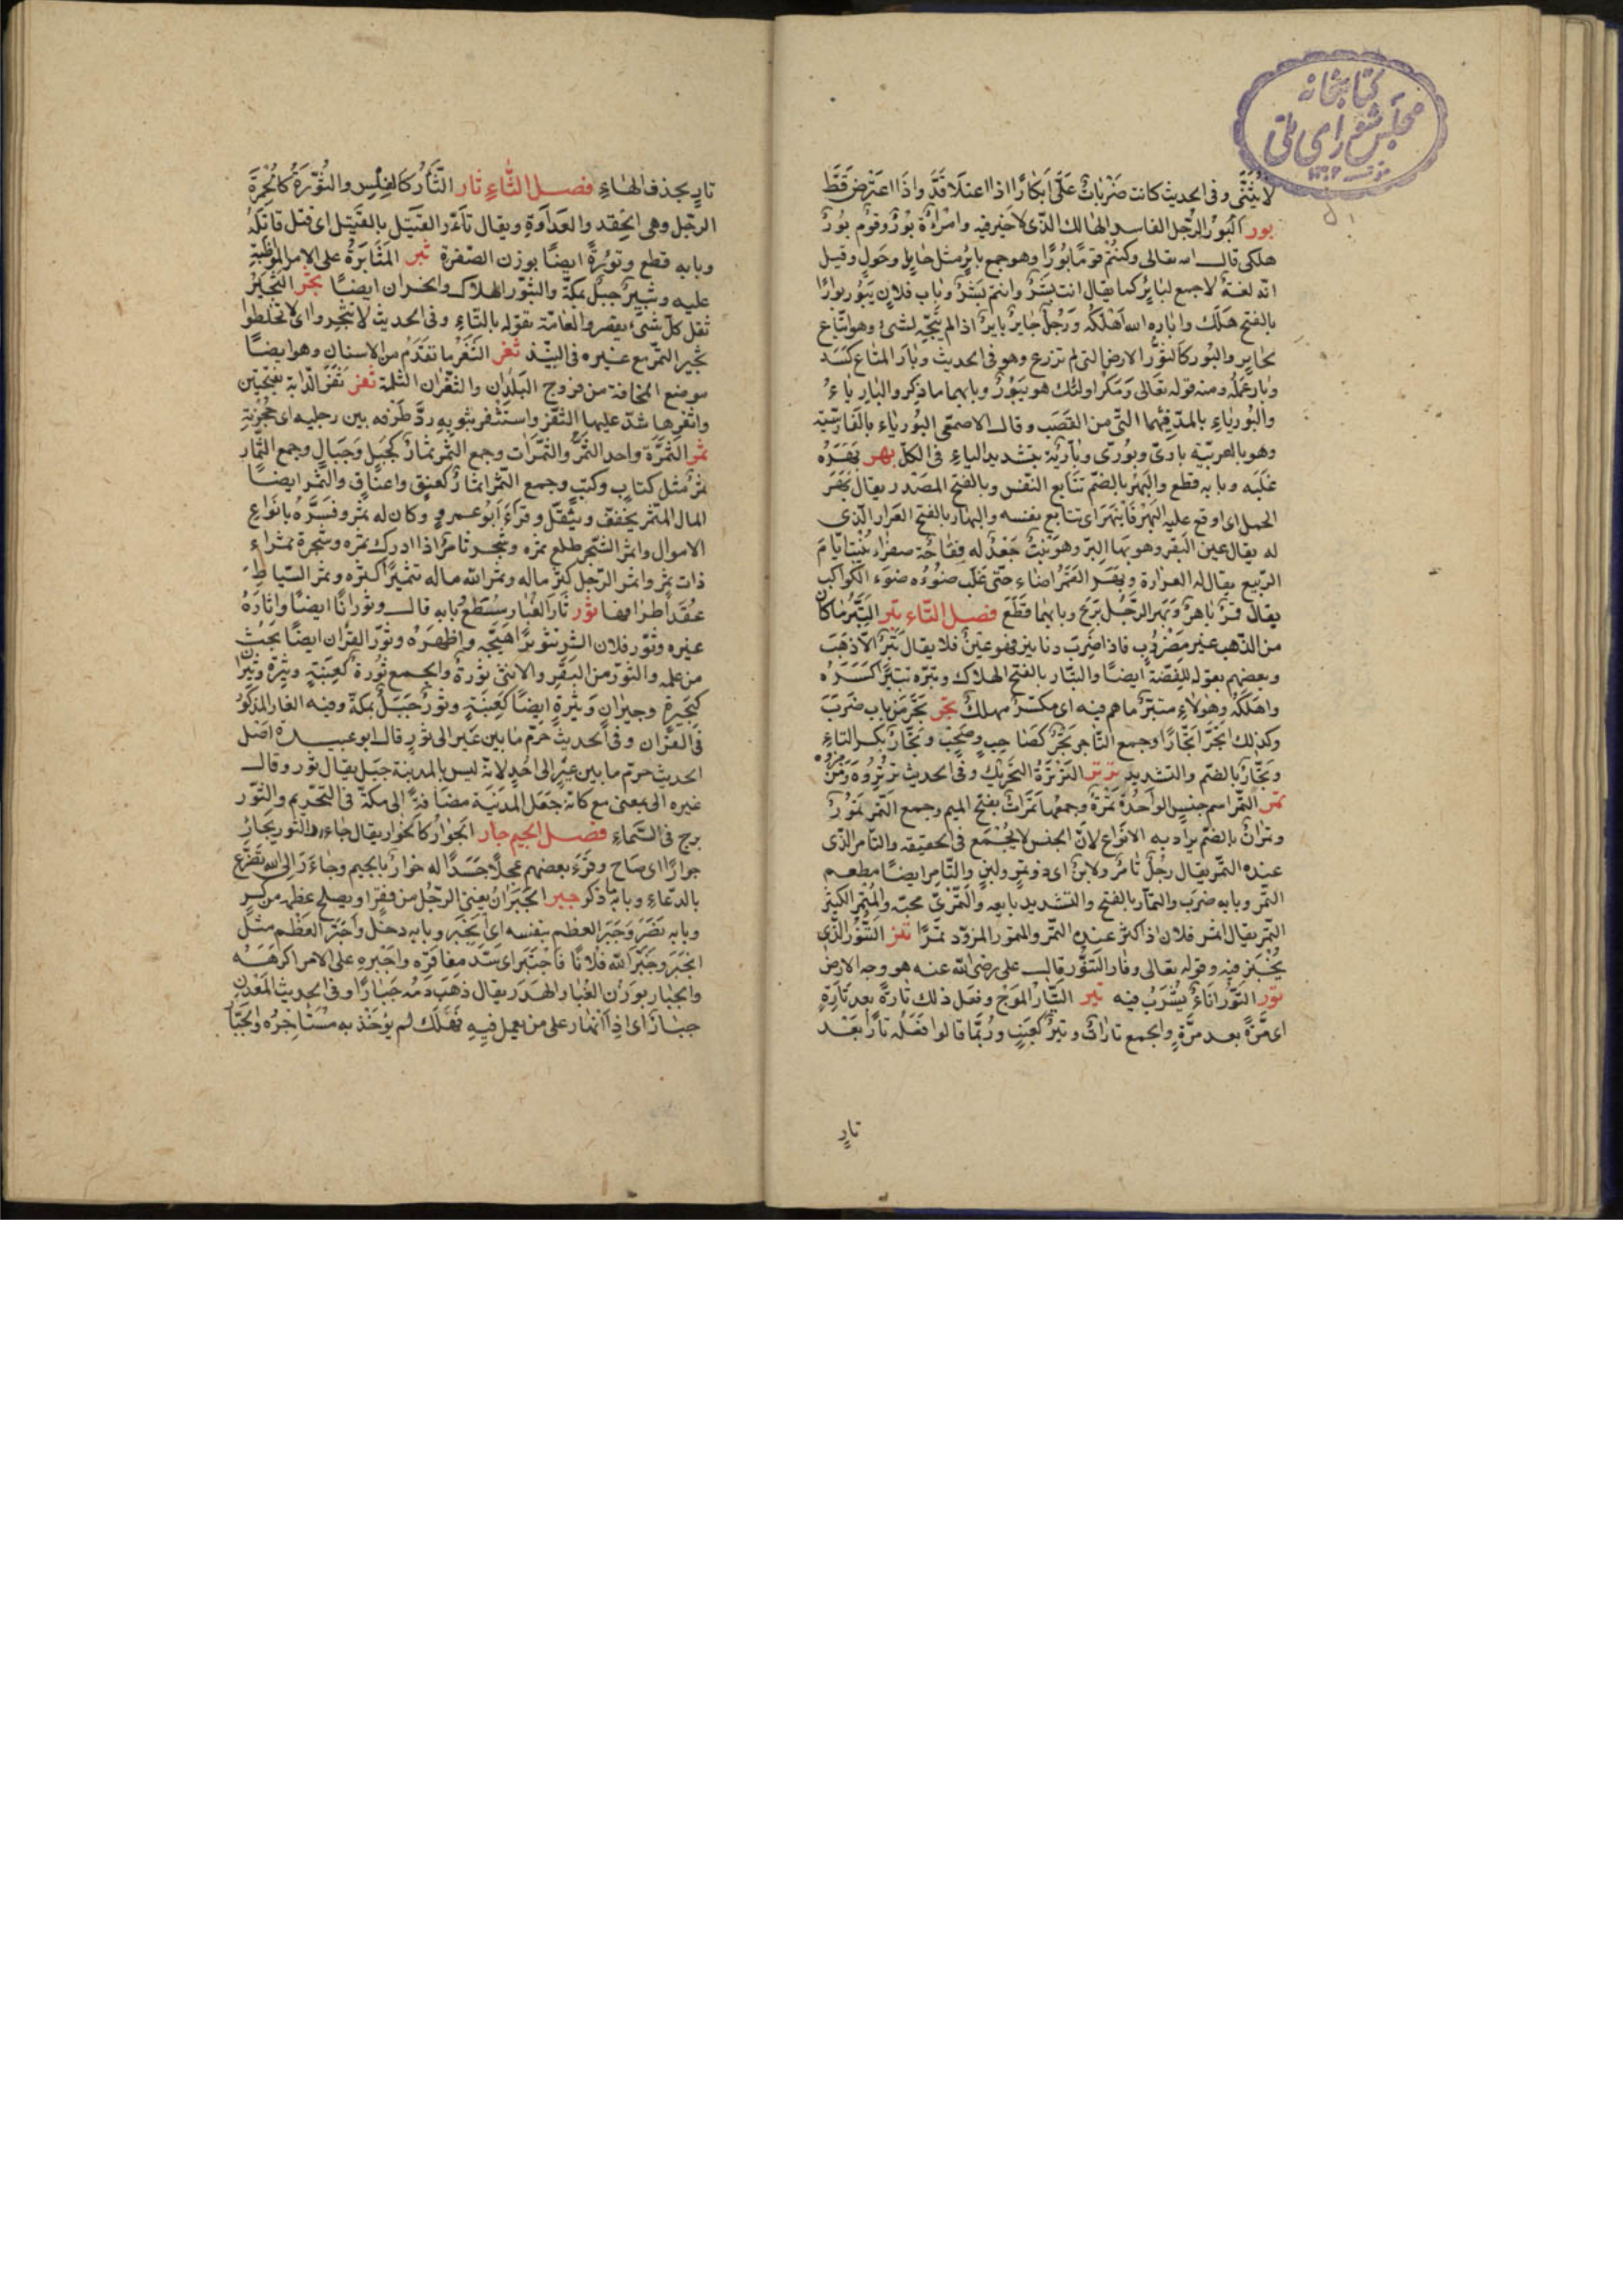 كتابخانه
مجلس شورای ملی
لا يُثَنَّى وفى الحديث كانت ضَرَبات عَلّى اَبكارًا اذا اعتلا قَدَّ واذا اعترض قَطَّ
بور البُورُ الرّجل الفاسد الهالك الذى لا خير فيه وامرأة بُورٌ وقوم بُورٌ
هلكى قال الله تعالى وكنتم قومًا بُورًا وهو جمع باير مثل حايل وحُول وقيل
انّه لغة لا جمع لباير كما يقال انت بَشَرٌ وانتم بَشَرٌ وباب فلان يَبُور بَوارًا
بالفتح هَلَك واباره الله اَهْلَكَه وَرَجُل حاير باير اذا لم يتّجه لشئ وهو اتباع
لحاير والبُور كالثور الارض التى لم تزرع وهو فى الحديث وبارَ المتاع كَسَد
وبار عَمَلُه ومنه قوله تعالى ومَكر اولئك هو يَبُورُ وبابهما ما ذكر والبارياءُ
والبُورياء بالمدّ فيهما التى من القَصَب وقال الاصمعى البُورياء بالفارسيّة
وهو بالعربيّة بارىّ وبُورىّ وباريّة بتشديد الياء فى الكلّ بهر بَهَرَه
غَلَبَه وبابه قطع والبُهْر بالضّم تتابع النفس وبالفتح المصدر يقال بَهَرَ
الحمل اى اوقع عليه البُهْر فانبَهَرَ اى تتابع نفسه والبهار بالفتح العرار الذى
له يقال عين البقر وهو بهار البرّ وهو نَبْتٌ جَعْدٌ له فقّاحة صفراء يُنبت ايام
الرّبيع يقال له العرارة وبَهَر القَمَرُ اضاء حتى غَلَب ضوءُه ضوء الكواكب
يقال قمرٌ باهرٌ وبَهَر الرَّجُل بَرَعَ وبابهما قَطَعَ فصل التّاء تبر التِّبْرُ ما كان
من الذّهب غير مَضروب فاذا ضُرب دنانير فهو عينٌ فلا يقال تبْرٌ الّا للذهب
وبعضهم يقوله للفِضّة ايضًا والتَّبار بالفتح الهلاك وتبّره تتبيرًا كَسَرَه
واهلكَهُ وهؤلاء متبّرٌ ما هم فيه اى مكسّرٌ مهلكٌ تجر تَجَرَ من باب ضَرَبَ
وكذلك اتّجَرَ اتّجارًا وجمع التّاجر تَجْرٌ كصَاحِبٍ وصَحْبٍ وتِجَارٌ بكسر التاء
وتُجّارٌ بالضّم والتشديد ترتر التَّرتَرَةُ التحْريك وفى الحديث تَرتِرُوه ومَزمِزُوه
تمر التَّمْر اسم جنس الواحدة تَمْرَةٌ وجمعها تَمَراتٌ بفتح الميم وجمع التَّمْر تُمُورٌ
وتمرانٌ بالضمّ يراد به الانواع لانّ الجنس لا يُجْمَع فى الحقيقة والتّامر الذى
عنده التَّمْر يقال رجُلٌ تامرٌ ولابنٌ اى ذو تمرٍ ولبنٍ والتّامر ايضًا مطعم
التّمر وبابه ضَرَب والتمّار بالفتح والتشديد بايعه والتَّمْرىّ محبّه والمُتْمِر الكثير
التّمر يقال اتمر فلان اذا كثر عنده التّمر والمتمور المزوّد تمْرًا تنر التَّنُّور الذى
يُخْبَز فيه وقوله تعالى وفار التَّنُّور قال على رضى الله عنه هو وجه الارض
تور التَّوْر اناءٌ يُشْرَبُ فيه تير التيّار المَوْج وفعل ذلك تارةً بعد تارةٍ
اى مَرّةً بعد مرّةٍ والجمع تاراتٌ وتِيَرٌ كعِنَبٍ وربّما قالوا فَعَلَه تارًا بَعْد
تارٍ
تارٍ بحذف الهاء فصل الثّاء ثار الثّأر كالفلس والثُّؤرة كالحُمرة
الرجل وهى الحقد والعداوة ويقال ثأر القتيل بالقتيل اى قتل قاتله
وبابه قطع وثؤرة ايضًا بوزن الصفرة ثبر المثابرة على الامر المواظبة
عليه وثبير جبل بمكّة والثبور الهلاك والخسران ايضًا ثجر الثجير
ثفل كلّ شئ يعصر والعامّة تقوله بالتاء وفى الحديث لا تثجروا اى لا تخلطوا
ثجير التمر مع غيره فى النبيذ ثغر الثغر ما تقدّم من الاسنان وهو ايضًا
موضع المخافة من فروج البلدان والثغران الثلمة ثفر ثفر الدابّة بفتحتين
واثفرها شدّ عليها الثفر واستثفر بثوبه ردّ طرفه بين رجليه اى حجزته
ثمر الثمرة واحد الثمر والثمرات وجمع الثمر ثمار كجبل وجبال وجمع الثمار
ثمر مثل كتاب وكتب وجمع الثمر اثمار كعنق واعناق والثمر ايضًا
المال المثمر يخفف ويثقّل وقرء ابو عمرو وكان له ثمر وفسّره بانواع
الاموال واثمر الشجر طلع ثمره وشجر ثامر اذا ادرك ثمره وشجرة ثمراء
ذات ثمر واثمر الرّجل كثر ماله وثمر الله ماله تثميرًا كثّره وثمر السياط
عقد اطرافها ثور ثار الغبار سطع بابه قال وثورانًا ايضًا واثاره
غيره وثوّر فلان الشر تثويرًا هيّجه واظهره وثوّر القرآن ايضًا بحث
من علمه والثور من البقر والانثى ثورة والجمع ثورة كعنبة وثيرة وثيران
كجيرة وجيران وثيرة ايضًا كعنبة وثور جبل بمكّة وفيه الغار المذكور
فى القرآن وفى الحديث حرّم ما بين عير الى ثور قال ابو عبيدة اصل
الحديث حرّم ما بين عير الى احد لانه ليس بالمدينة جبل يقال ثور وقال
غيره الى بمعنى مع كانه جعل المدينة مضافة الى مكّة فى التحريم والثور
برج فى السّماء فصل الجيم جار الجؤار كالخوار يقال جاء ر الثور يجار
جوارًا اى صاح وقرء بعضهم عجلًا جسدًا له جوار بالجيم وجاءَرَ الى الله تضرّع
بالدّعاء وبابه ما ذكر جبر الجبر ان يغنى الرّجل من فقر او يصلح عظمه من كسر
وبابه نصر وجبر العظم بنفسه اى انجبر وبابه دخل واجبر العظم مثل
انجبر وجبر الله فلانًا فاجتبر اى سدّ مفاقره واجبره على الامر اكرهه
والجبار بوزن الغبار الهدر يقال ذهب دمه جبارًا وفى الحديث المعدن
جبار اى اذا انهار على من يعمل فيه فهلك لم يؤخذ به مستاجره والجبّار